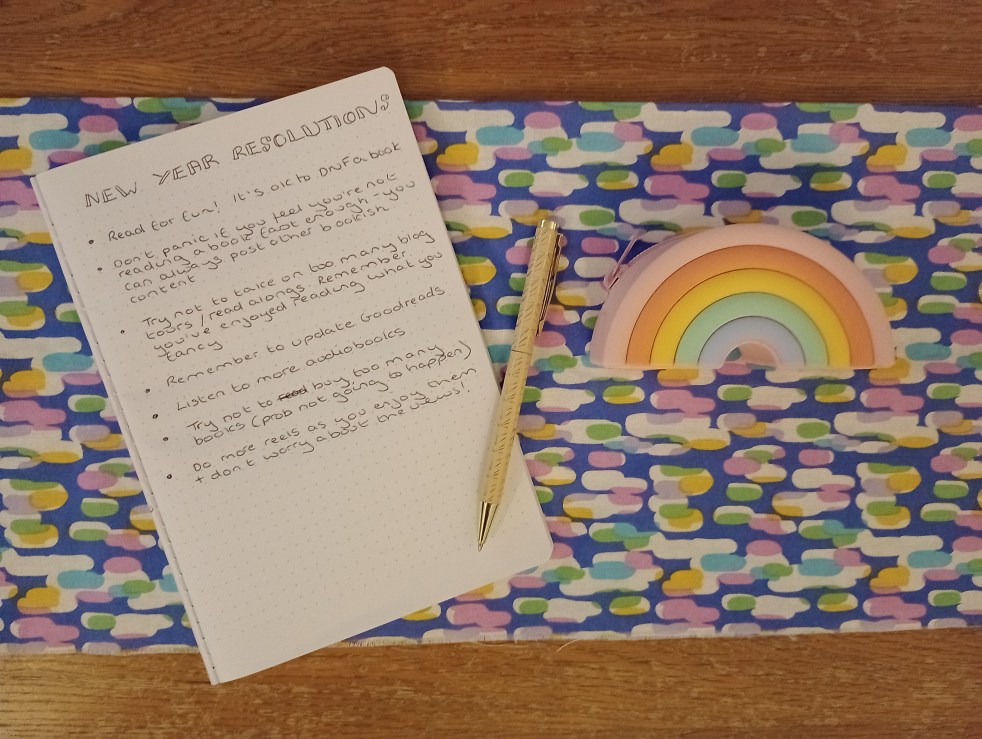 NEW YEAR RESOLUTIONS
• Read for fun! It's ok to DNF a book
• Don't panic if you feel you're not
reading a book fast enough - you
can always post other bookish
content
• Try not to take on too many blog
tours / read alongs. Remember
you've enjoyed reading what you
fancy
• Remember to update Goodreads
• Listen to more audiobooks
• Try not to read buy too many
books (prob not going to happen)
• Do more reels as you enjoy them
+ don't worry about the views!